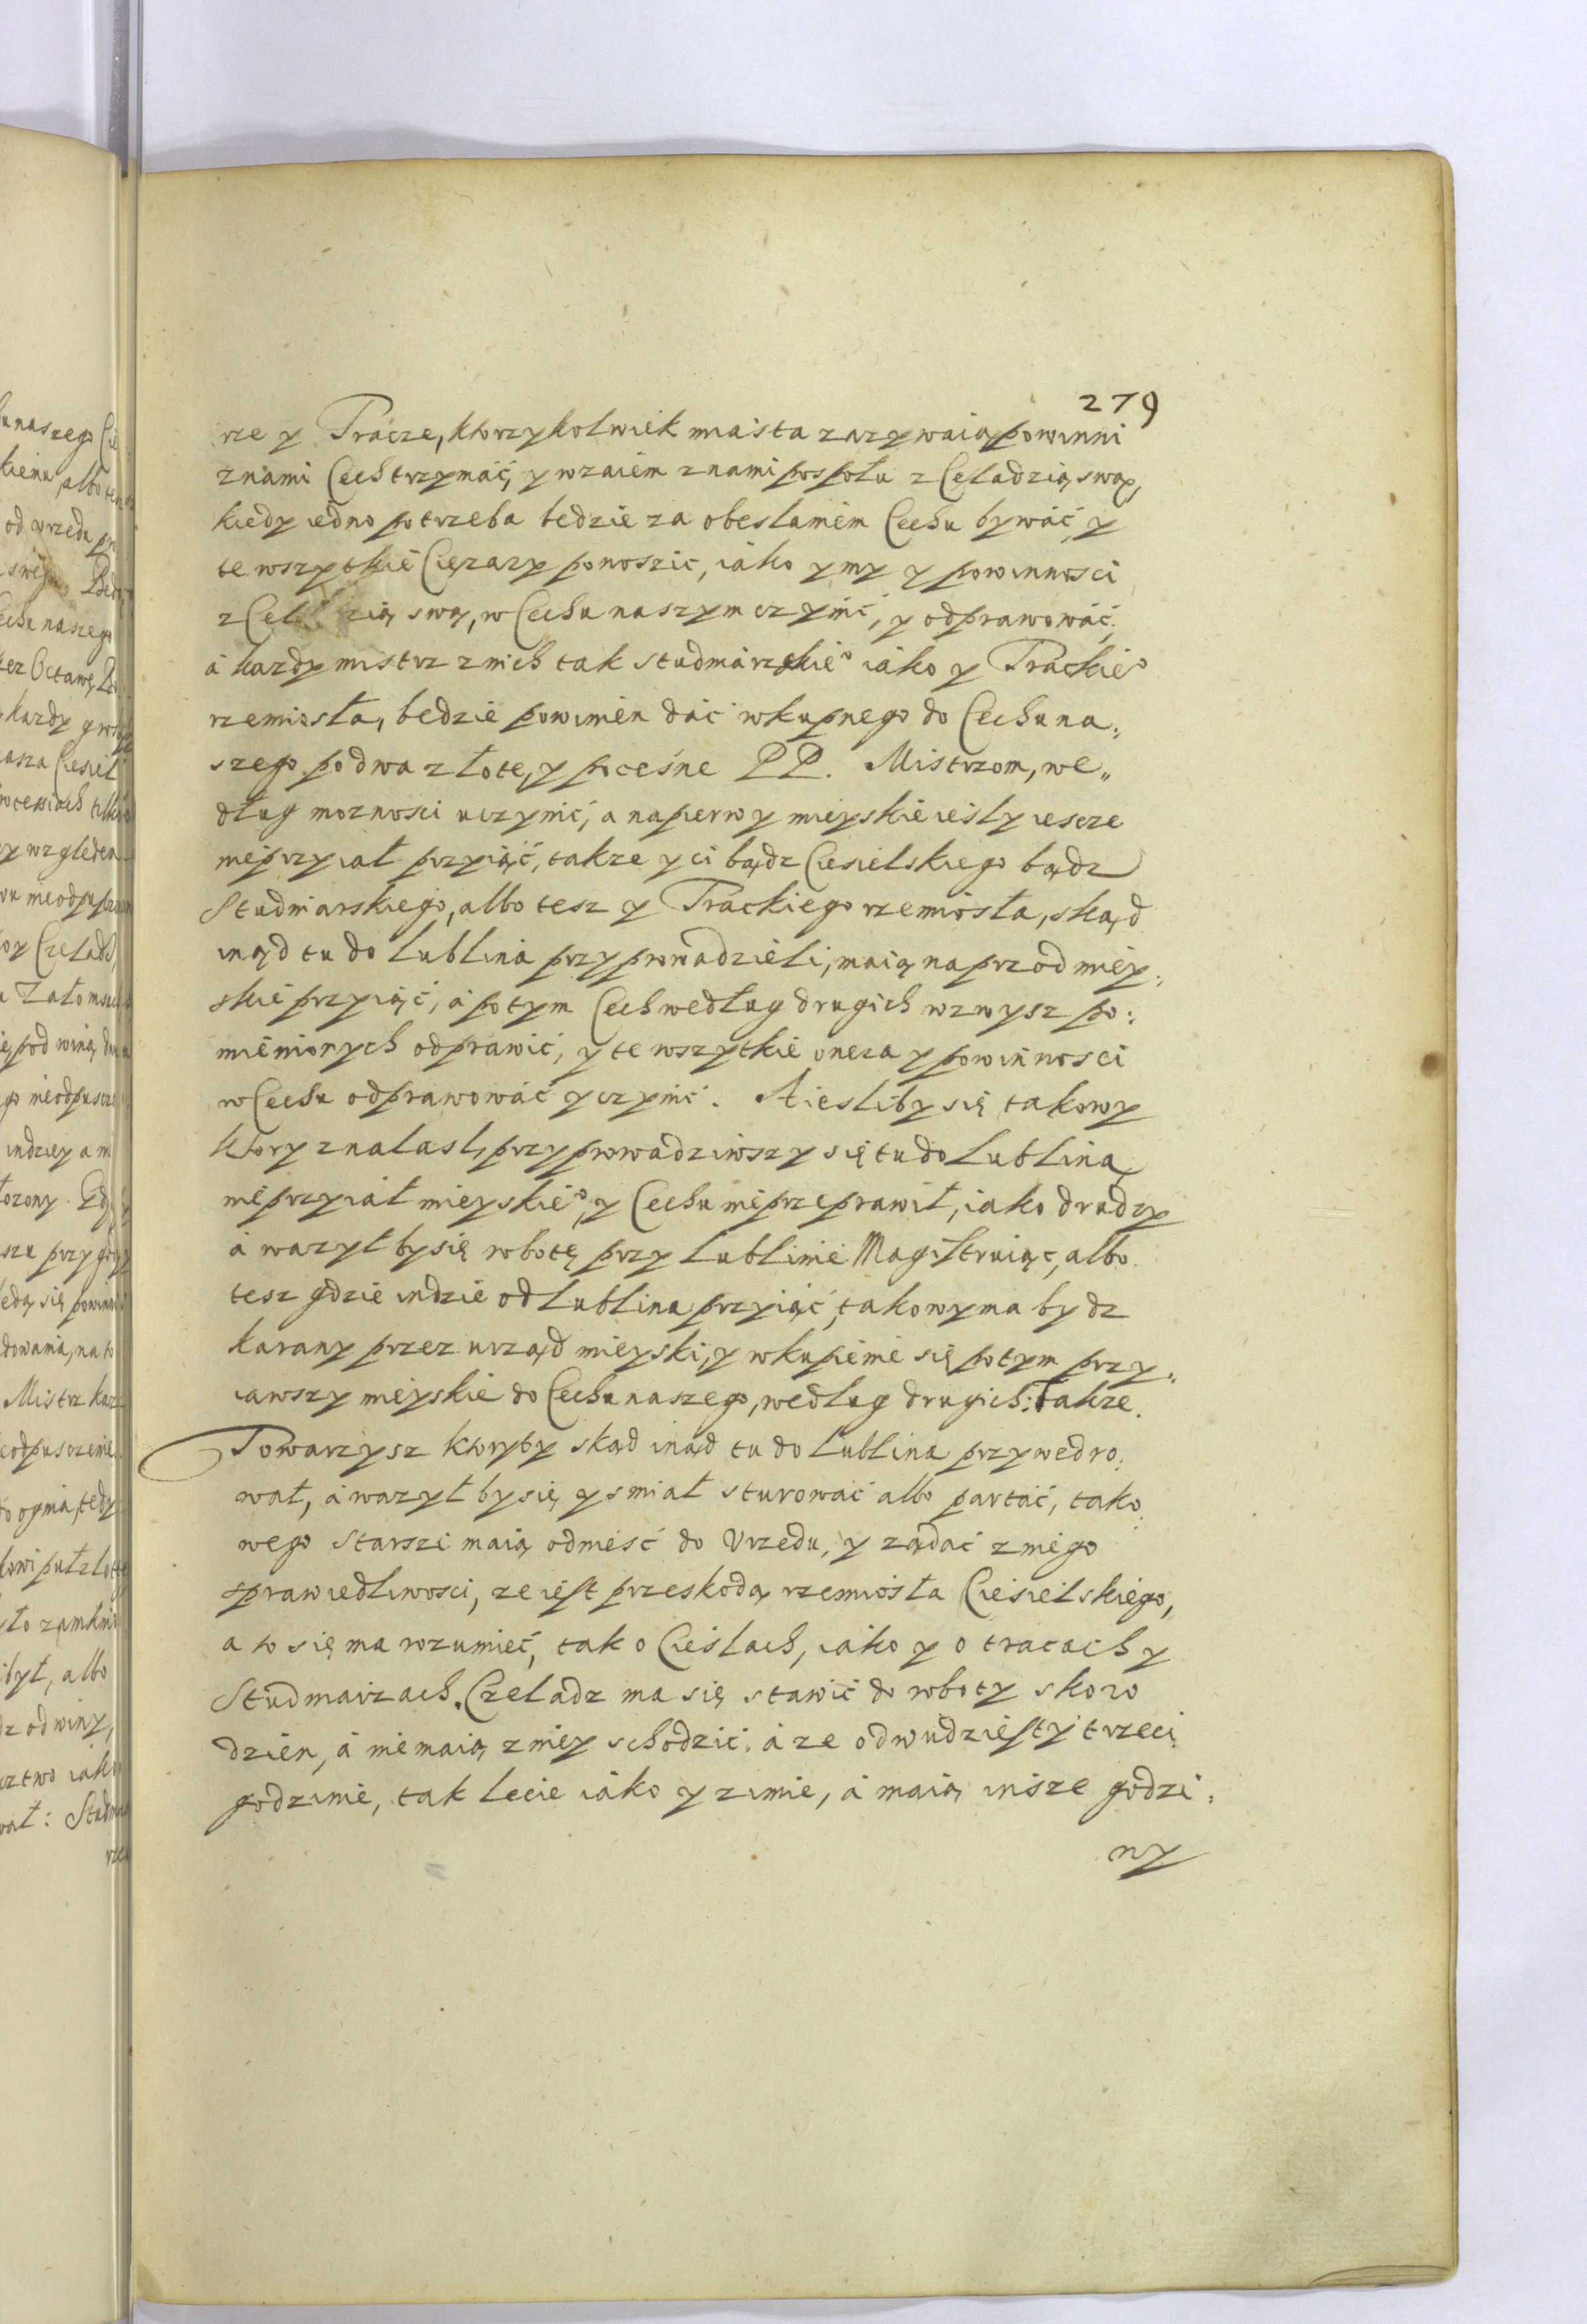 279
rze y Tracze, ktorzykolwiek miasta zazywaią powinni
znami Cech trzymać, y wzaiem znami pospołu z Celadzią swą,
kiedy iedno potrzeba bedzie za obesłaniem Cechu bywać, y
te wszytkie Ciężary ponoszic, iako y my y powinnosci
z Cel zią swą, w Cechu naszym czynić, y odprawować,
a kazdy mistrz znich tak studniarskie° iako y Trackie°
rzemiosła, bedzie powinien dać wkupnego do Cechu na:
szego po dwa złote, y poceśne PP. Mistrzom, we„
dług moznosci uczynić, a napierwy mieyskie iesly iescze
nieprzyiał przyiąć, takze y ci bądz Ciesielskiego bądz
Studniarskiego, albo tesz y Trackiego rzemiosła, skąd
inąd tu do Lublina przyprowadzieli, maią naprzod miey:
skie przyiąć, a potym Cech według drugich wzwysz po:
mienionych odprawić, y te wszytkie onera y powinnosci
w Cechu odprawować y czynić. A iesliby się takowy
ktory znalasł, przyprowadziwszy się tu do Lublina,
nieprzyiał mieyskie°, y Cechu nieprzeprawił, iako drudzy
a wazył by się robotę przy Lublinie Magistruiąc, albo
tesz gdzie indzie od Lublina przyiąć, takowy ma bydz
karany przez urząd mieyski, y wkupienie się potym przy:
iawszy mieyskie do Cechu naszego, według drugich: Takze
Towarzysz ktoryby skąd inąd tu do Lublina przywedro:
wał, a wazył by się y smiał sturować albo partać, tako
wego starszi maią odnieść do Vrzedu, y ządać zniego
sprawiedliwosci, ze iest przeskodą rzemiosła Ciesielskiego,
a to się ma rozumieć, tak o Cieslach, iako y o tracach y
Studniarzach. Czeladz ma się stawić do roboty skoro
dzien, a niemaią zniey schodzić, a ze odwudziesty trzeci
godzinie, tak lecie iako y zimie, a maią insze godzi:
ny